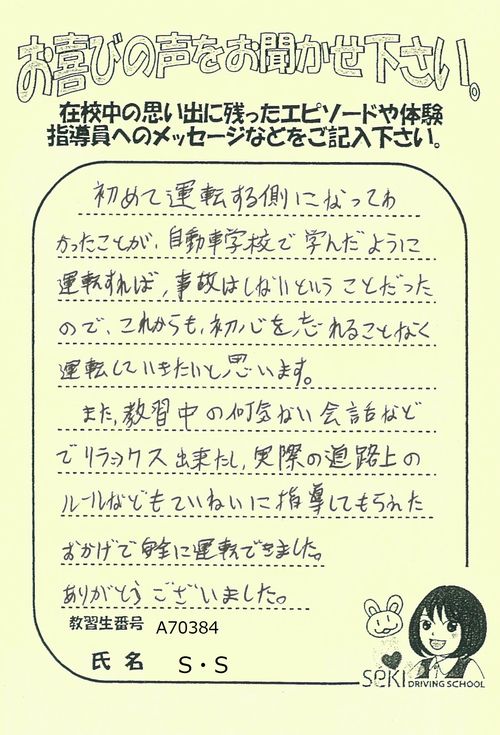 お喜びの声をお聞かせ下さい。
在校中の思い出に残ったエピソードや体験
指導員へのメッセージなどをご記入下さい。
初めて運転する側になってわ
かったことが、自動車学校で学んだように
運転すれば、事故はしないということだった
ので、これからも、初心を忘れることなく
運転していきたいと思います。
また、教習中の何気ない会話など
でリラックス出来たし、実際の道路上の
ルールなどもていねいに指導してもらえた
おかげで安全に運転できました。
ありがとうございました。
教習生番号 A70384
氏名 S・S
SeKI DRIVING SCHOOL